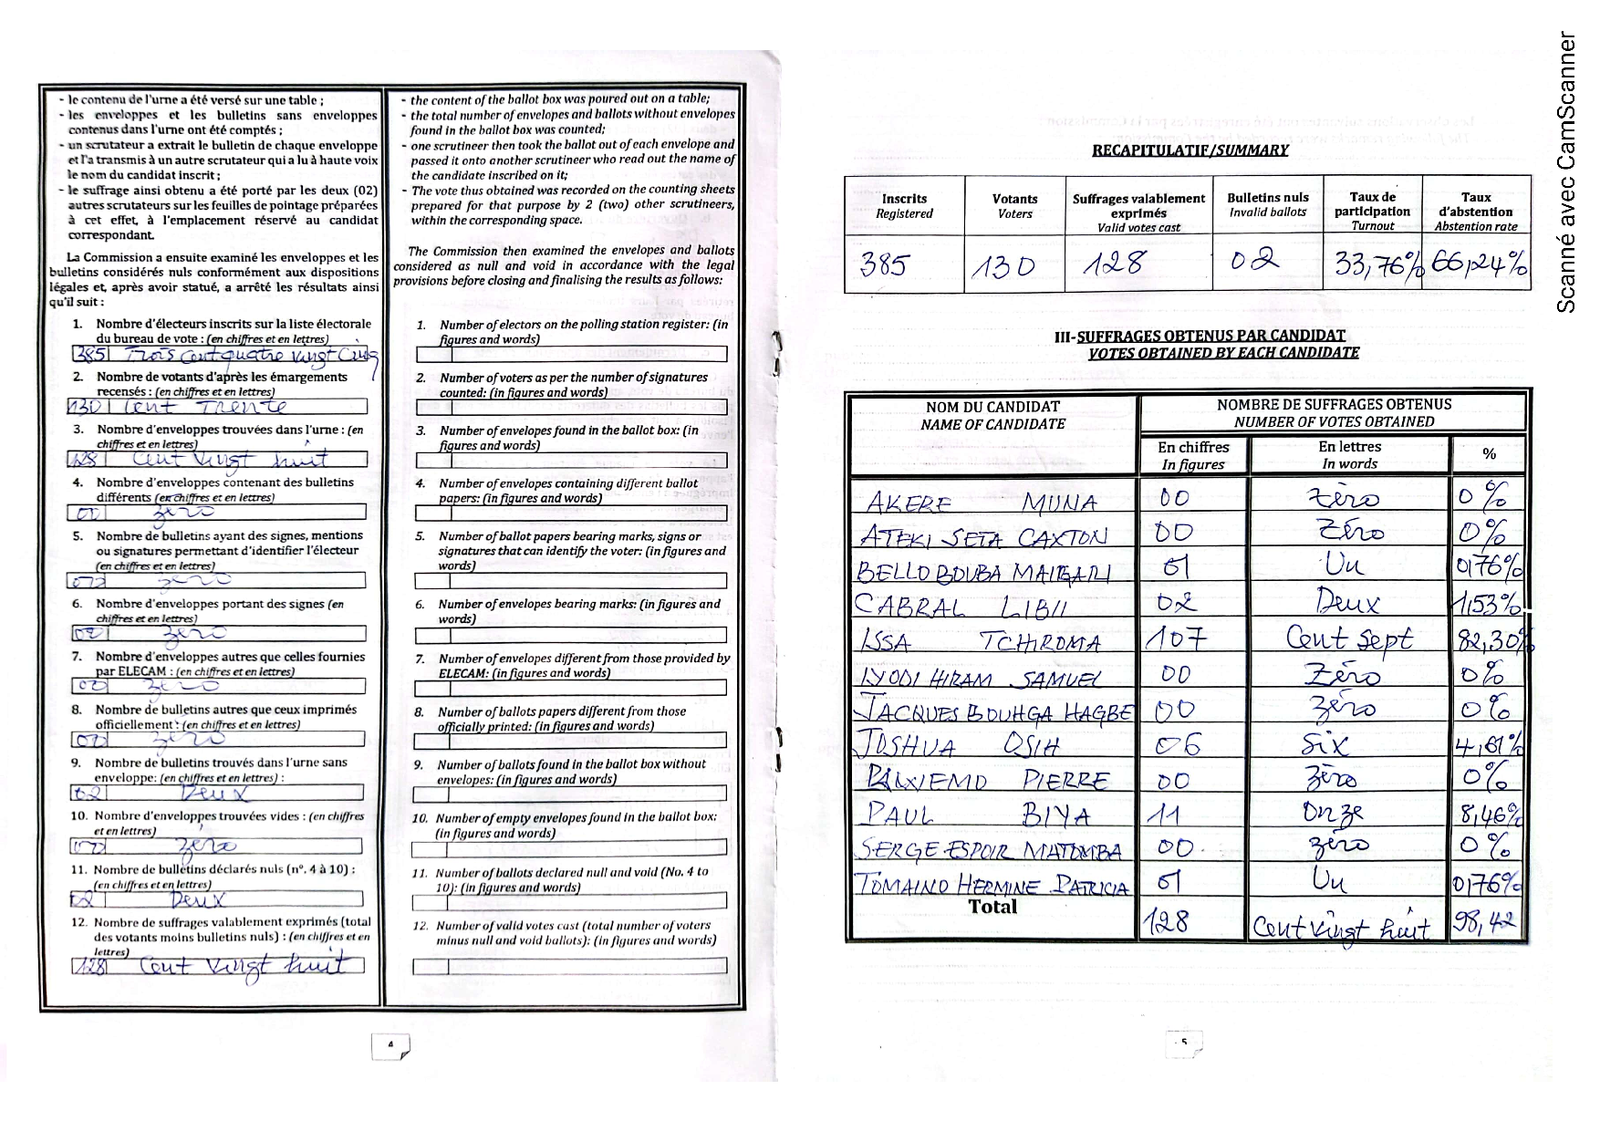 - le contenu de l'urne a été versé sur une table ;
- les enveloppes et les bulletins sans enveloppes
contenus dans l'urne ont été comptés ;
- un scrutateur a extrait le bulletin de chaque enveloppe
et l'a transmis à un autre scrutateur qui a lu à haute voix
le nom du candidat inscrit ;
- le suffrage ainsi obtenu a été porté par les deux (02)
autres scrutateurs sur les feuilles de pointage préparées
à cet effet, à l'emplacement réservé au candidat
correspondant.
La Commission a ensuite examiné les enveloppes et les
bulletins considérés nuls conformément aux dispositions
légales et, après avoir statué, a arrêté les résultats ainsi
qu'il suit :
1. Nombre d'électeurs inscrits sur la liste électorale
du bureau de vote : (en chiffres et en lettres)
385 Trois Cent quatre Vingt Cinq
2. Nombre de votants d'après les émargements
recensés : (en chiffres et en lettres)
130 Cent Trente
3. Nombre d'enveloppes trouvées dans l'urne : (en
chiffres et en lettres)
128 Cent Vingt huit
4. Nombre d'enveloppes contenant des bulletins
différents (en chiffres et en lettres)
00 zéro
5. Nombre de bulletins ayant des signes, mentions
ou signatures permettant d'identifier l'électeur
(en chiffres et en lettres)
00 zéro
6. Nombre d'enveloppes portant des signes (en
chiffres et en lettres)
00 zéro
7. Nombre d'enveloppes autres que celles fournies
par ELECAM : (en chiffres et en lettres)
00 zéro
8. Nombre de bulletins autres que ceux imprimés
officiellement : (en chiffres et en lettres)
00 zéro
9. Nombre de bulletins trouvés dans l'urne sans
enveloppe: (en chiffres et en lettres) :
02 Deux
10. Nombre d'enveloppes trouvées vides : (en chiffres
et en lettres)
00 zéro
11. Nombre de bulletins déclarés nuls (n°. 4 à 10) :
(en chiffres et en lettres)
02 Deux
12. Nombre de suffrages valablement exprimés (total
des votants moins bulletins nuls) : (en chiffres et en
lettres)
128 Cent Vingt huit
- the content of the ballot box was poured out on a table;
- the total number of envelopes and ballots without envelopes
found in the ballot box was counted;
- one scrutineer then took the ballot out of each envelope and
passed it onto another scrutineer who read out the name of
the candidate inscribed on it;
- The vote thus obtained was recorded on the counting sheets
prepared for that purpose by 2 (two) other scrutineers,
within the corresponding space.
The Commission then examined the envelopes and ballots
considered as null and void in accordance with the legal
provisions before closing and finalising the results as follows:
1. Number of electors on the polling station register: (in
figures and words)
2. Number of voters as per the number of signatures
counted: (in figures and words)
3. Number of envelopes found in the ballot box: (in
figures and words)
4. Number of envelopes containing different ballot
papers: (in figures and words)
5. Number of ballot papers bearing marks, signs or
signatures that can identify the voter: (in figures and
words)
6. Number of envelopes bearing marks: (in figures and
words)
7. Number of envelopes different from those provided by
ELECAM: (in figures and words)
8. Number of ballots papers different from those
officially printed: (in figures and words)
9. Number of ballots found in the ballot box without
envelopes: (in figures and words)
10. Number of empty envelopes found in the ballot box:
(in figures and words)
11. Number of ballots declared null and void (No. 4 to
10): (in figures and words)
12. Number of valid votes cast (total number of voters
minus null and void ballots): (in figures and words)
4
RECAPITULATIF/SUMMARY
Inscrits Registered Votants Voters Suffrages valablement exprimés Valid votes cast Bulletins nuls Invalid ballots Taux de participation Turnout Taux d'abstention Abstention rate
385 130 128 02 33,76% 66,24%
III-SUFFRAGES OBTENUS PAR CANDIDAT
VOTES OBTAINED BY EACH CANDIDATE
NOM DU CANDIDAT NOMBRE DE SUFFRAGES OBTENUS
NAME OF CANDIDATE NUMBER OF VOTES OBTAINED
En chiffres En lettres %
In figures In words
AKERE MUNA 00 Zéro 0%
ATEKI SETA CAXTON 00 Zéro 0%
BELLO BOUBA MAIGARI 01 Un 0,76%
CABRAL LIBII 02 Deux 1,53%
ISSA TCHIROMA 107 Cent Sept 82,30%
IYODI HIRAM SAMUEL 00 Zéro 0%
JACQUES BOUHGA HAGBE 00 zéro 0%
JOSHUA OSIH 06 Six 4,61%
PIERRE 00 zéro 0%
PAUL BIYA 11 Onze 8,46%
SERGE ESPOIR MATOMBA 00 zéro 0%
TOMAINO HERMINE PATRICIA 01 Un 0,76%
Total 128 Cent Vingt huit 98,42
5
Scanné avec CamScanner